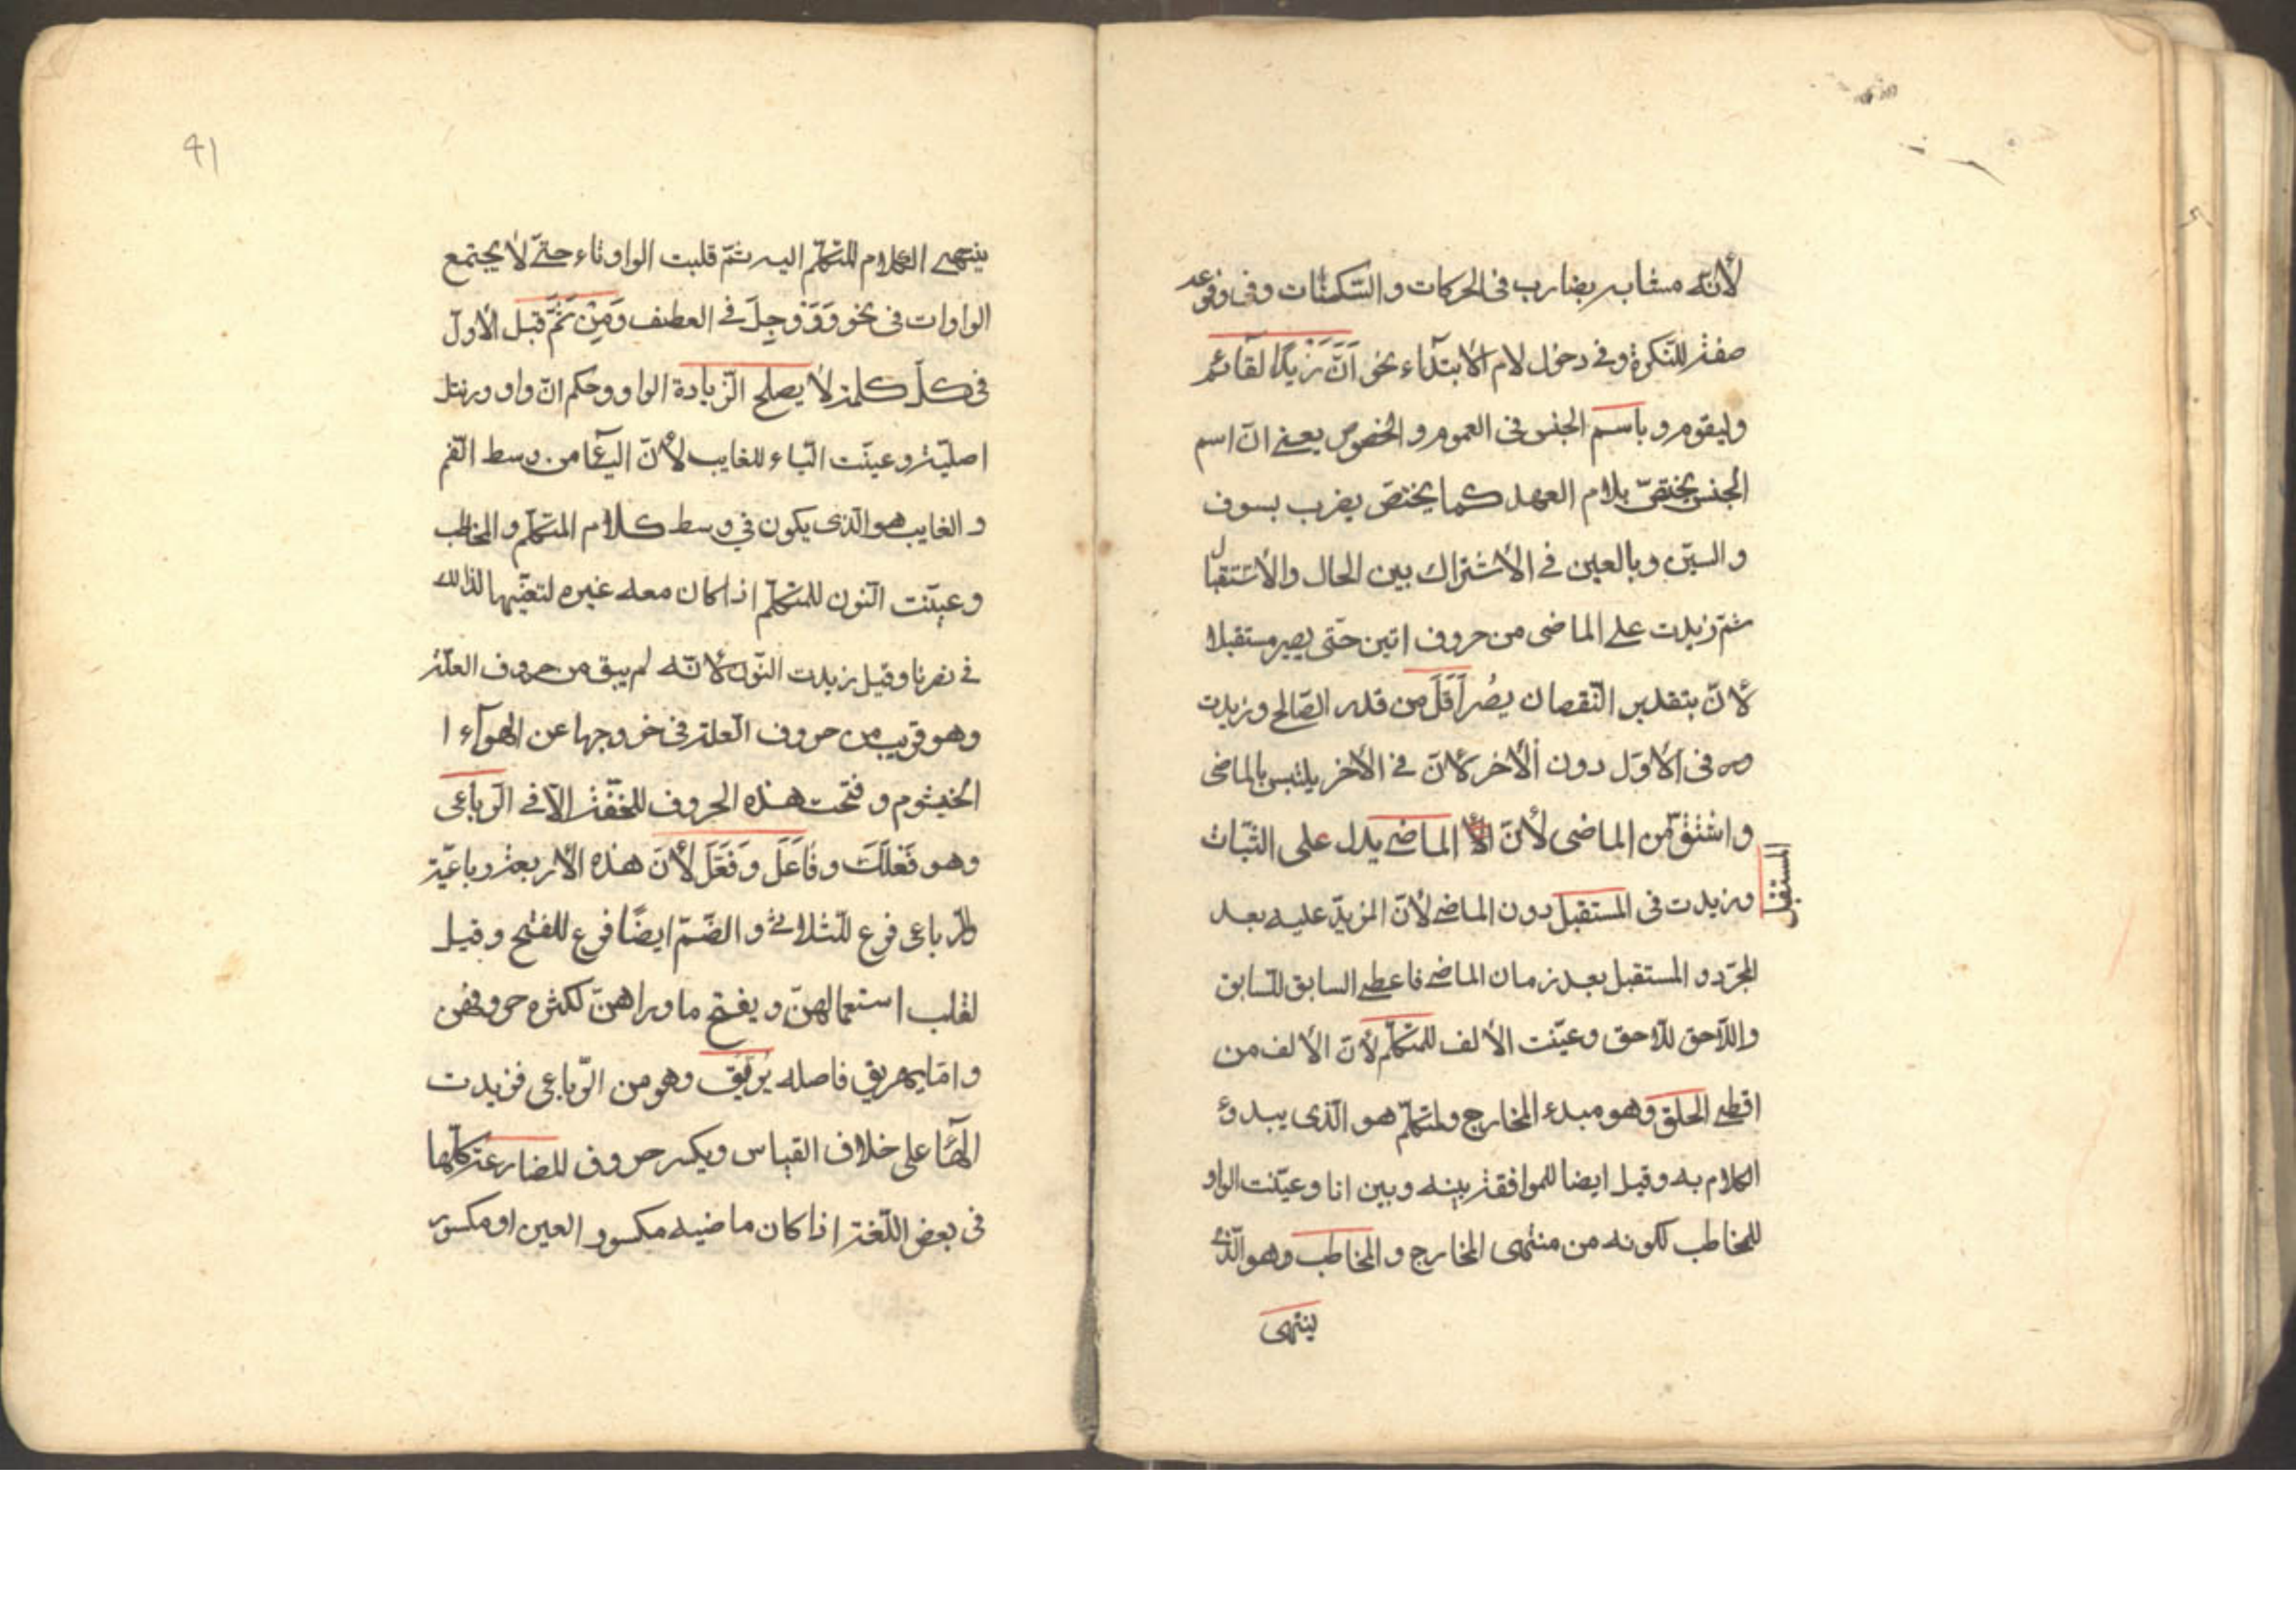 لأنّه مشابه بضارب فى الحركات والسّكنات وفى وقوعه
صفة للنّكرة وفى دخول لام الأبتدآء نحو اَنَّ زَيْدًا لقائم
وليقوم و باسم الجنس فى العموم و الخصوص يعنى انّ اسم
الجنس يختصّ بلام العهد كما يختصّ يضرب بسوف
و السيّن وبالعين فى الأشتراك بين الحال والأستقبال
ثمّ زيدت على الماضى من حروف اتين حتّى يصير مستقبلا
لأنّ بتقدير النّقصان يصُر اَقَلّ من قدر الصّالح وزيدت
فى الأوّل دون الأخر لأنّ فى الأخر يلتبس بالماضى
و اشتقّ من الماضى لأنّ الماضى يدل على الثّبات
المستقبل
وزيدت فى المستقبل دون الماضى لأنّ المزيدّ عليه بعد
المجرّد و المستقبل بعد زمان الماضى فاعطى السابق للسّابق
واللّاحق للّاحق وعيّنت الألف للمتكلّم لأنّ الألف من
اقطى الحلق وهو مبدء المخارج ولمتكلّم هو الّذى يبدؤ
الكلام به وقيل ايضا للموافقة بينه وبين انا وعيّنت الواو
للمخاطب لكونه من منتهى المخارج و المخاطب وهو الّذى
ينتهى
41
ينتهى الكلام للمتكلّم اليه ثمّ قلبت الواو تاء حتىّ لا يجتمع
الواوات فى نحو وَوَوْجِلَ فى العطف وَمِنْ ثَمَّ قيل الأوّل
فى كلّ كلمة لا يصلح الزّيادة الواو وحكم انّ واو ورنتل
اصليّة وعيّنت اليّاء للغايب لأنّ اليآء من وسط الفم
و الغايب هو الّذى يكون فى وسط كلام المتكلّم و المخاطب
وعيّنت النّون للمتكلّم اذا كان معه غيره لتعيّنها لذالك
فى نصرنا وقيل زيدت النّون لأنّه لم يبق من حروف العلّة
وهو قريب من حروف العلّة فى خروجها عن الهوآء ا
الخيشوم و فتحت هذه الحروف للخفّة الّا فى الرّباعى
وهو فَعْلَلَ و فَاعَلَ و فَعَّلَ لأنّ هذه الأربعة رباعيّة
والرّباعى فرع للثّلاثى و الضّمّ ايضًا فرع للفتح وقيل
لقلب استعمالهنّ و يفتح ما وراهنّ لكثره حروفهن
و امّا يهريق فاصله يُرَيِّق وهو من الرّباعى فزيدت
الهآء على خلاف القياس ويكسر حروف المضارعة كلّها
فى بعض اللّغة اذا كان ماضيه مكسور العين او مكسور